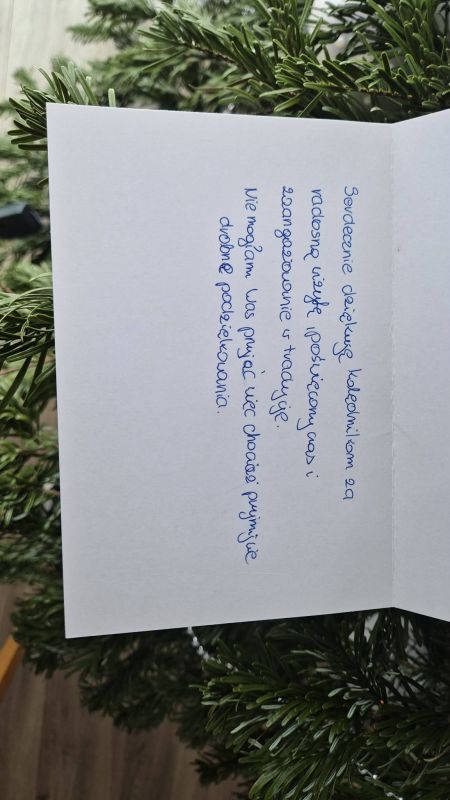 Serdecznie dziękuję kolędnikom za
radosną wizytę, poświęcony czas i
zaangażowanie w tradycję.
Nie mogłam Was przyjąć więc chociaż przyjmijcie
drobne podziękowania.